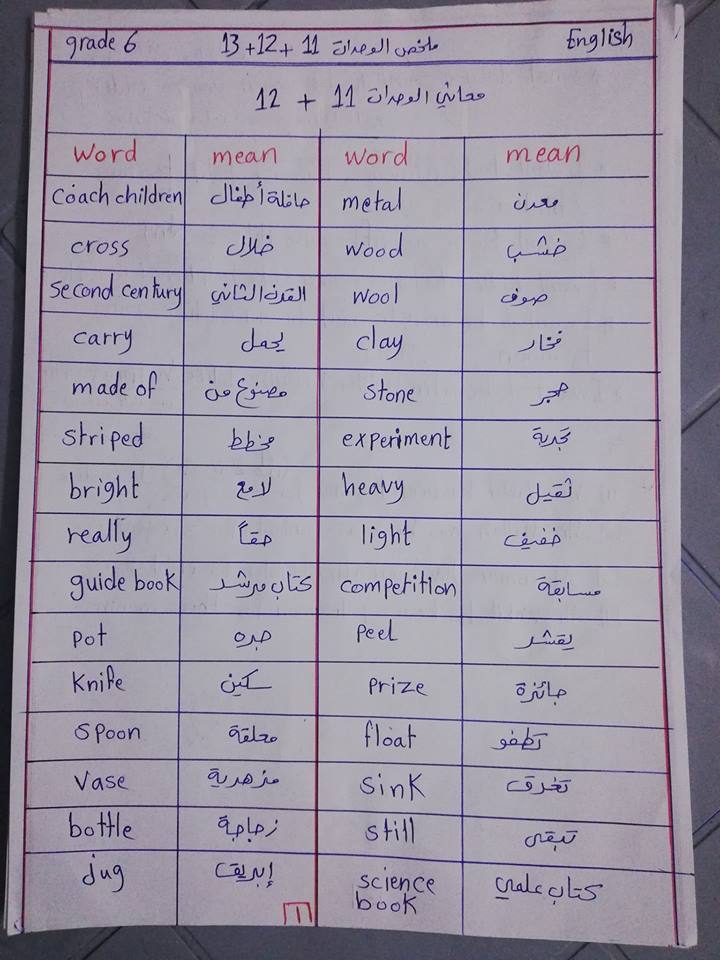 grade 6 ملخص الوحدات 11 + 12 + 13 English
معاني الوحدات 11 + 12
word mean word mean
coach children حافلة أطفال metal معدن
cross خلال wood خشب
second century القرن الثاني wool صوف
carry يحمل clay فخار
made of مصنوع من stone حجر
striped مخطط experiment تجربة
bright لامع heavy ثقيل
really حقاً light خفيف
guide book كتاب مرشد competition مسابقة
pot جره peel يقشر
knife سكين prize جائزة
spoon معلقة float تطفو
vase مزهرية sink تغرق
bottle زجاجة still تبقى
jug إبريق science book كتاب علمي
1